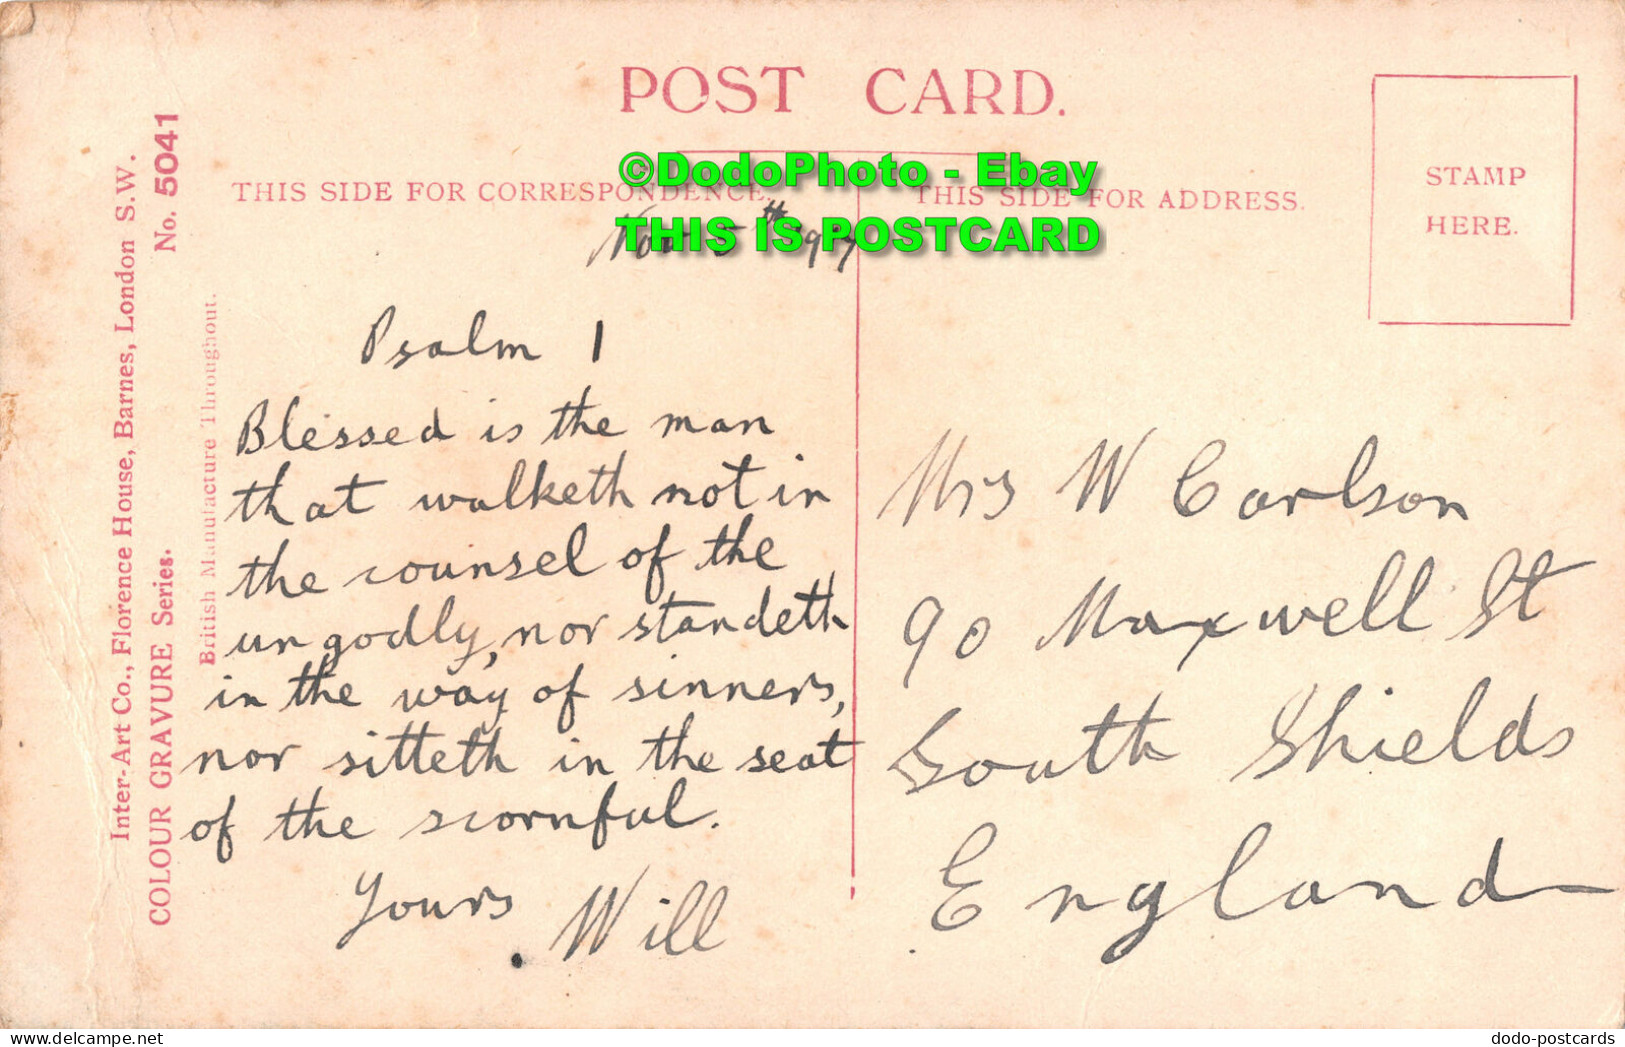 POST CARD.
THIS SIDE FOR CORRESPONDENCE.
THIS SIDE FOR ADDRESS.
STAMP
HERE.
©DodoPhoto - Ebay
THIS IS POSTCARD
Inter-Art Co., Florence House, Barnes, London S.W.
COLOUR GRAVURE Series. No. 5041
British Manufacture Throughout.
Nov 5th
Psalm 1
Blessed is the man
that walketh not in
the counsel of the
ungodly, nor standeth
in the way of sinners,
nor sitteth in the seat
of the scornful.
Yours Will
Mrs W Carlson
90 Maxwell St
South Shields
England
www.delcampe.net
dodo-postcards